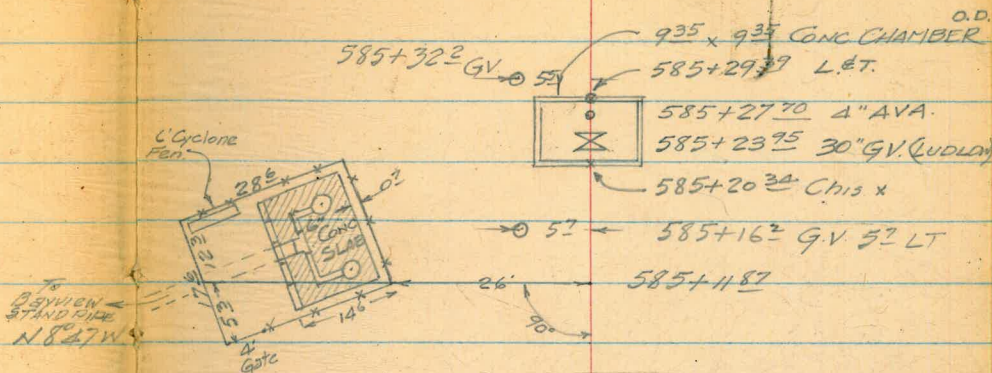 O.D.
9.35 x 9.35 CONC CHAMBER
585+32.2 GV.
5.5
585+29.39 L.&T.
585+27.70 4" AVA.
585+23.95 30" G.V. (LUDLOW)
585+20.34 Chis x
5.7 585+16.2 G.V 5.7 LT
26' 585+11.87
90°
6' Cyclone
Fen
28.6
0.7
6"
CONC
SLAB
12.3
5.3
14.6
4'
Gate
To
Bayview
STAND PIPE
N 8°47'W